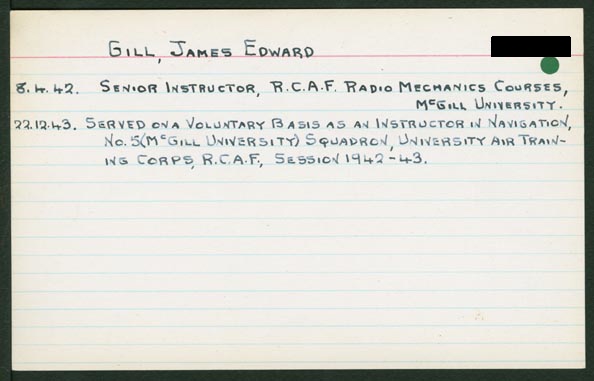 GILL, JAMES EDWARD
8.4.42. SENIOR INSTRUCTOR, R.C.A.F. RADIO MECHANICS COURSES,
McGILL UNIVERSITY.
22.12.43. SERVED ON A VOLUNTARY BASIS AS AN INSTRUCTOR IN NAVIGATION,
No. 5 (McGILL UNIVERSITY) SQUADRON, UNIVERSITY AIR TRAIN-
ING CORPS, R.C.A.F., SESSION 1942-43.